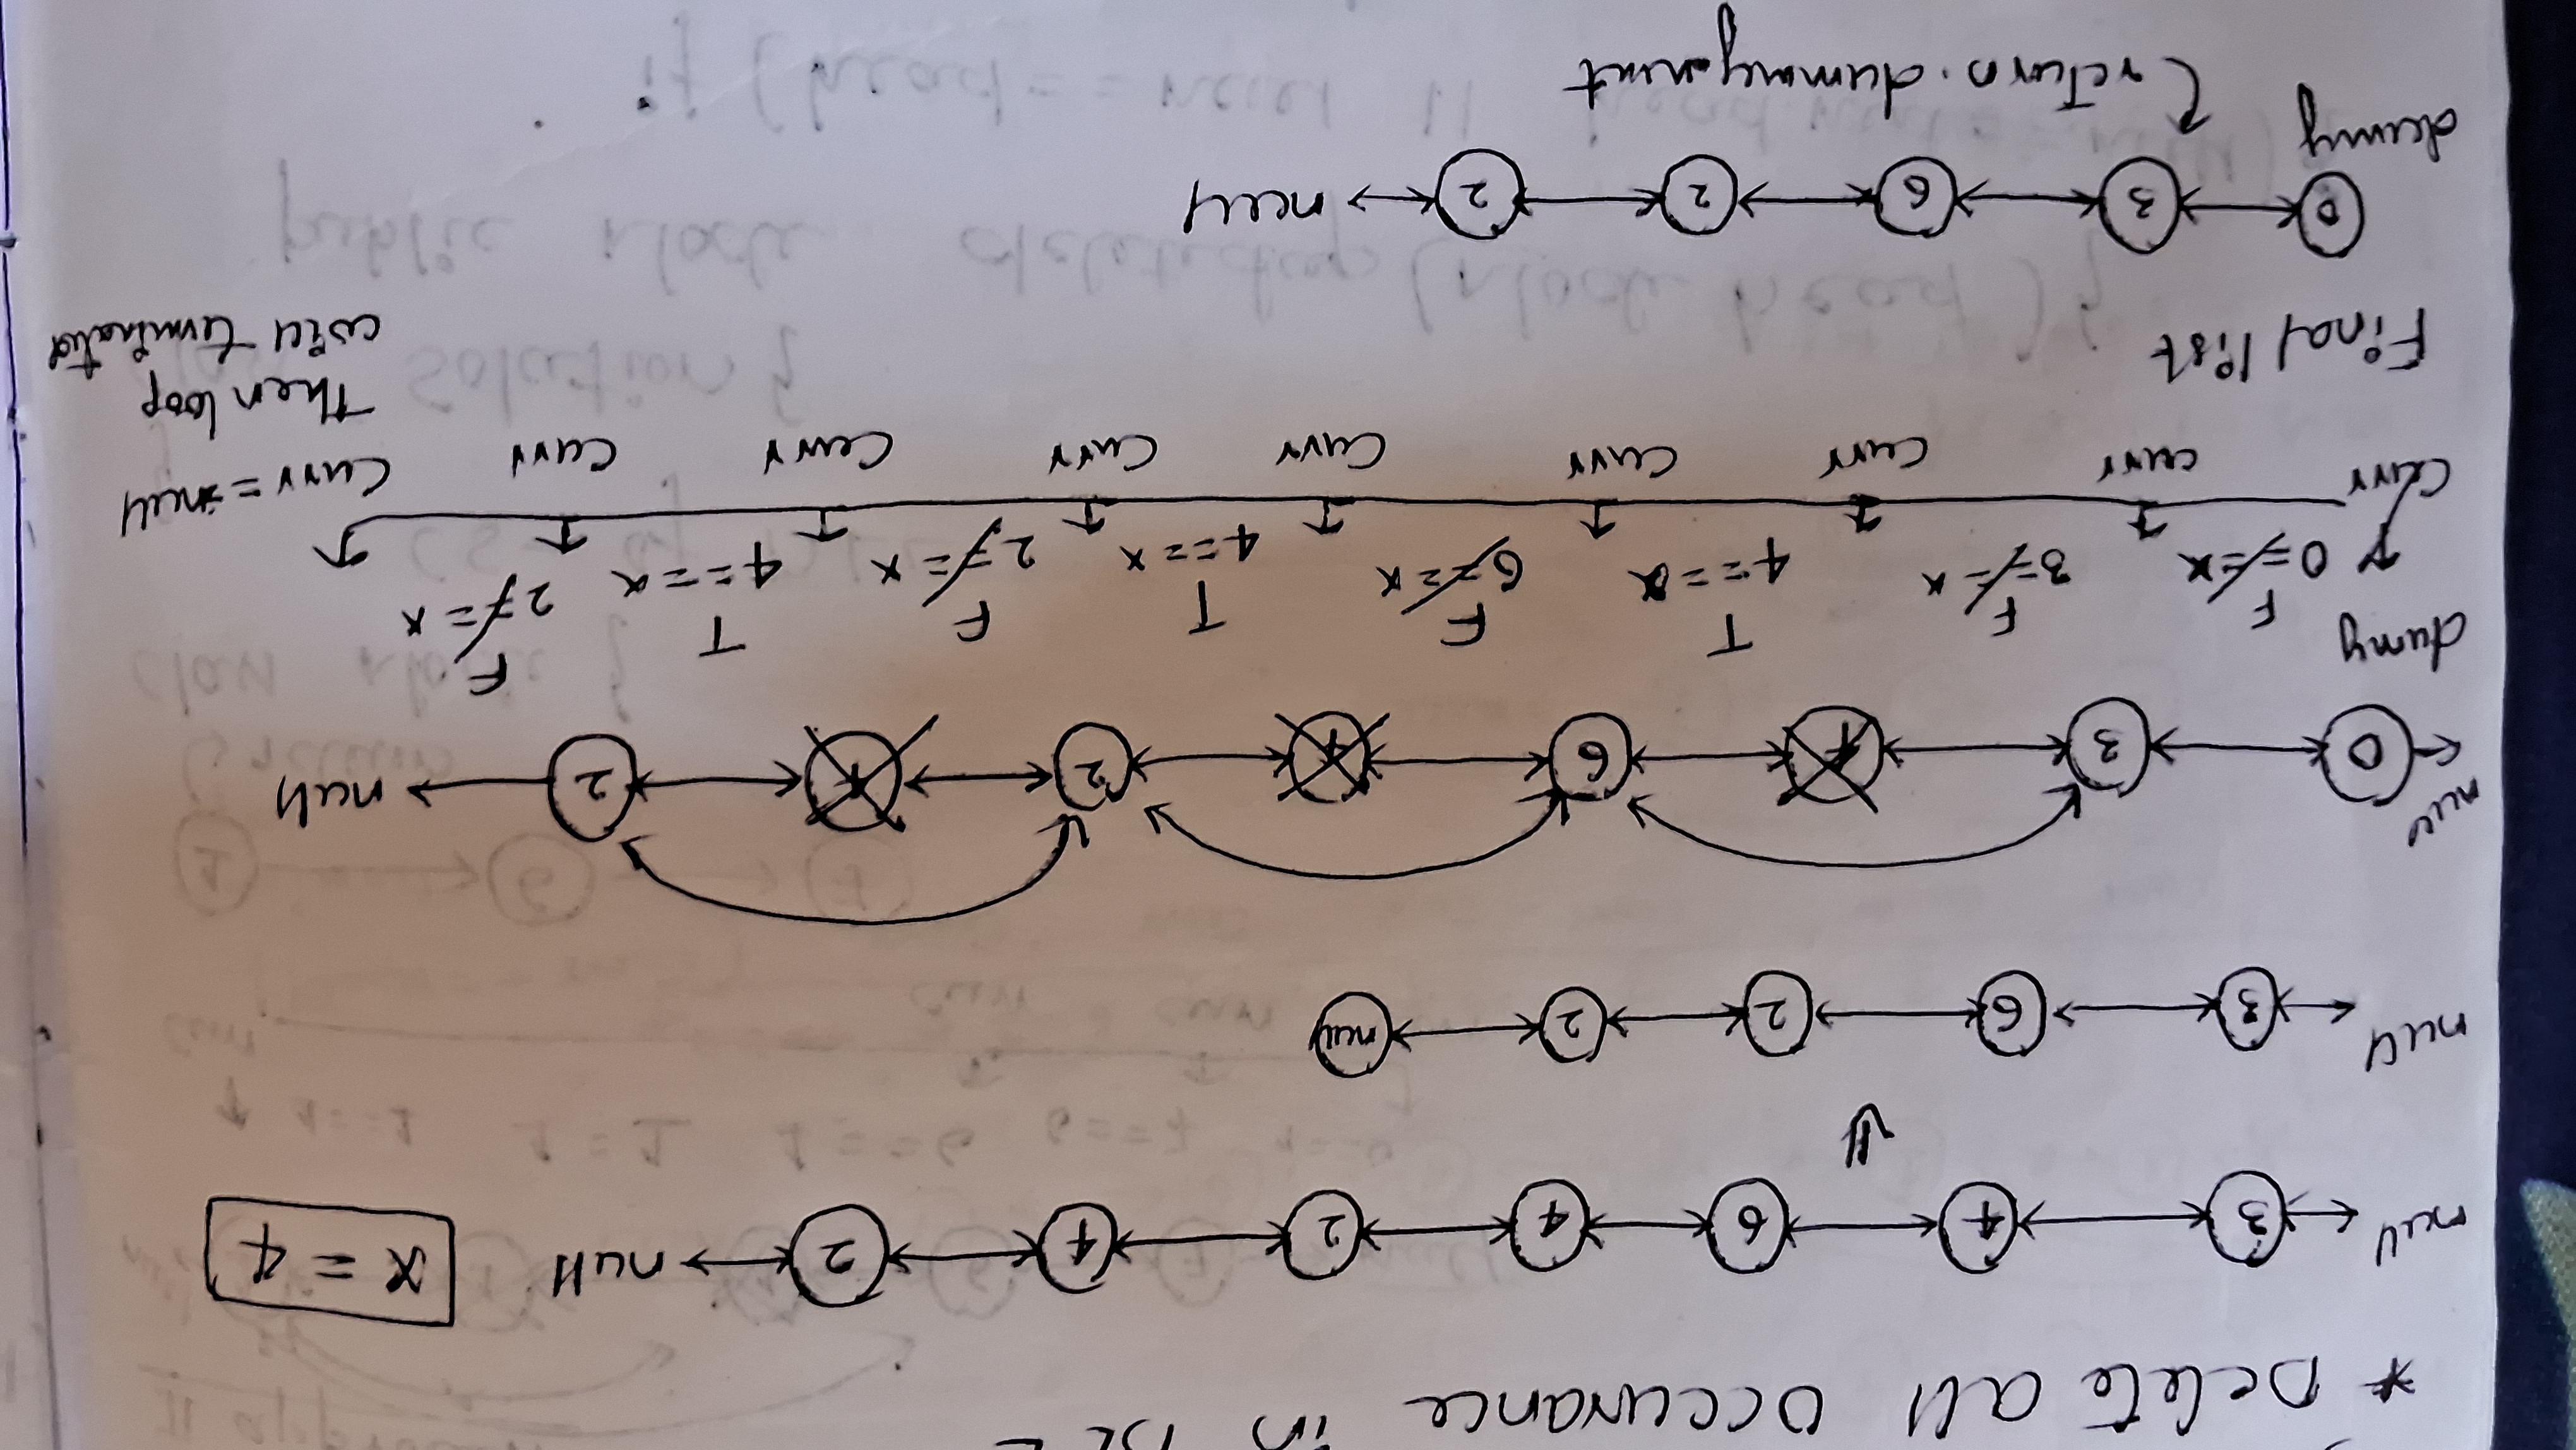 * Delete all occurance in DLL
null 3 4 6 4 2 4 2 null
x = 4
null 3 6 2 2 null
null 0 3 4 6 4 2 4 2 null
dumy
F F T F T F T F
0 == x 3 == x 4 == x 6 == x 4 == x 2 == x 4 == x 2 == x
Curr curr curr curr curr curr curr curr curr = null
Then loop
will terminated
Final list
0 3 6 2 2 null
dumy
return. dummy.next